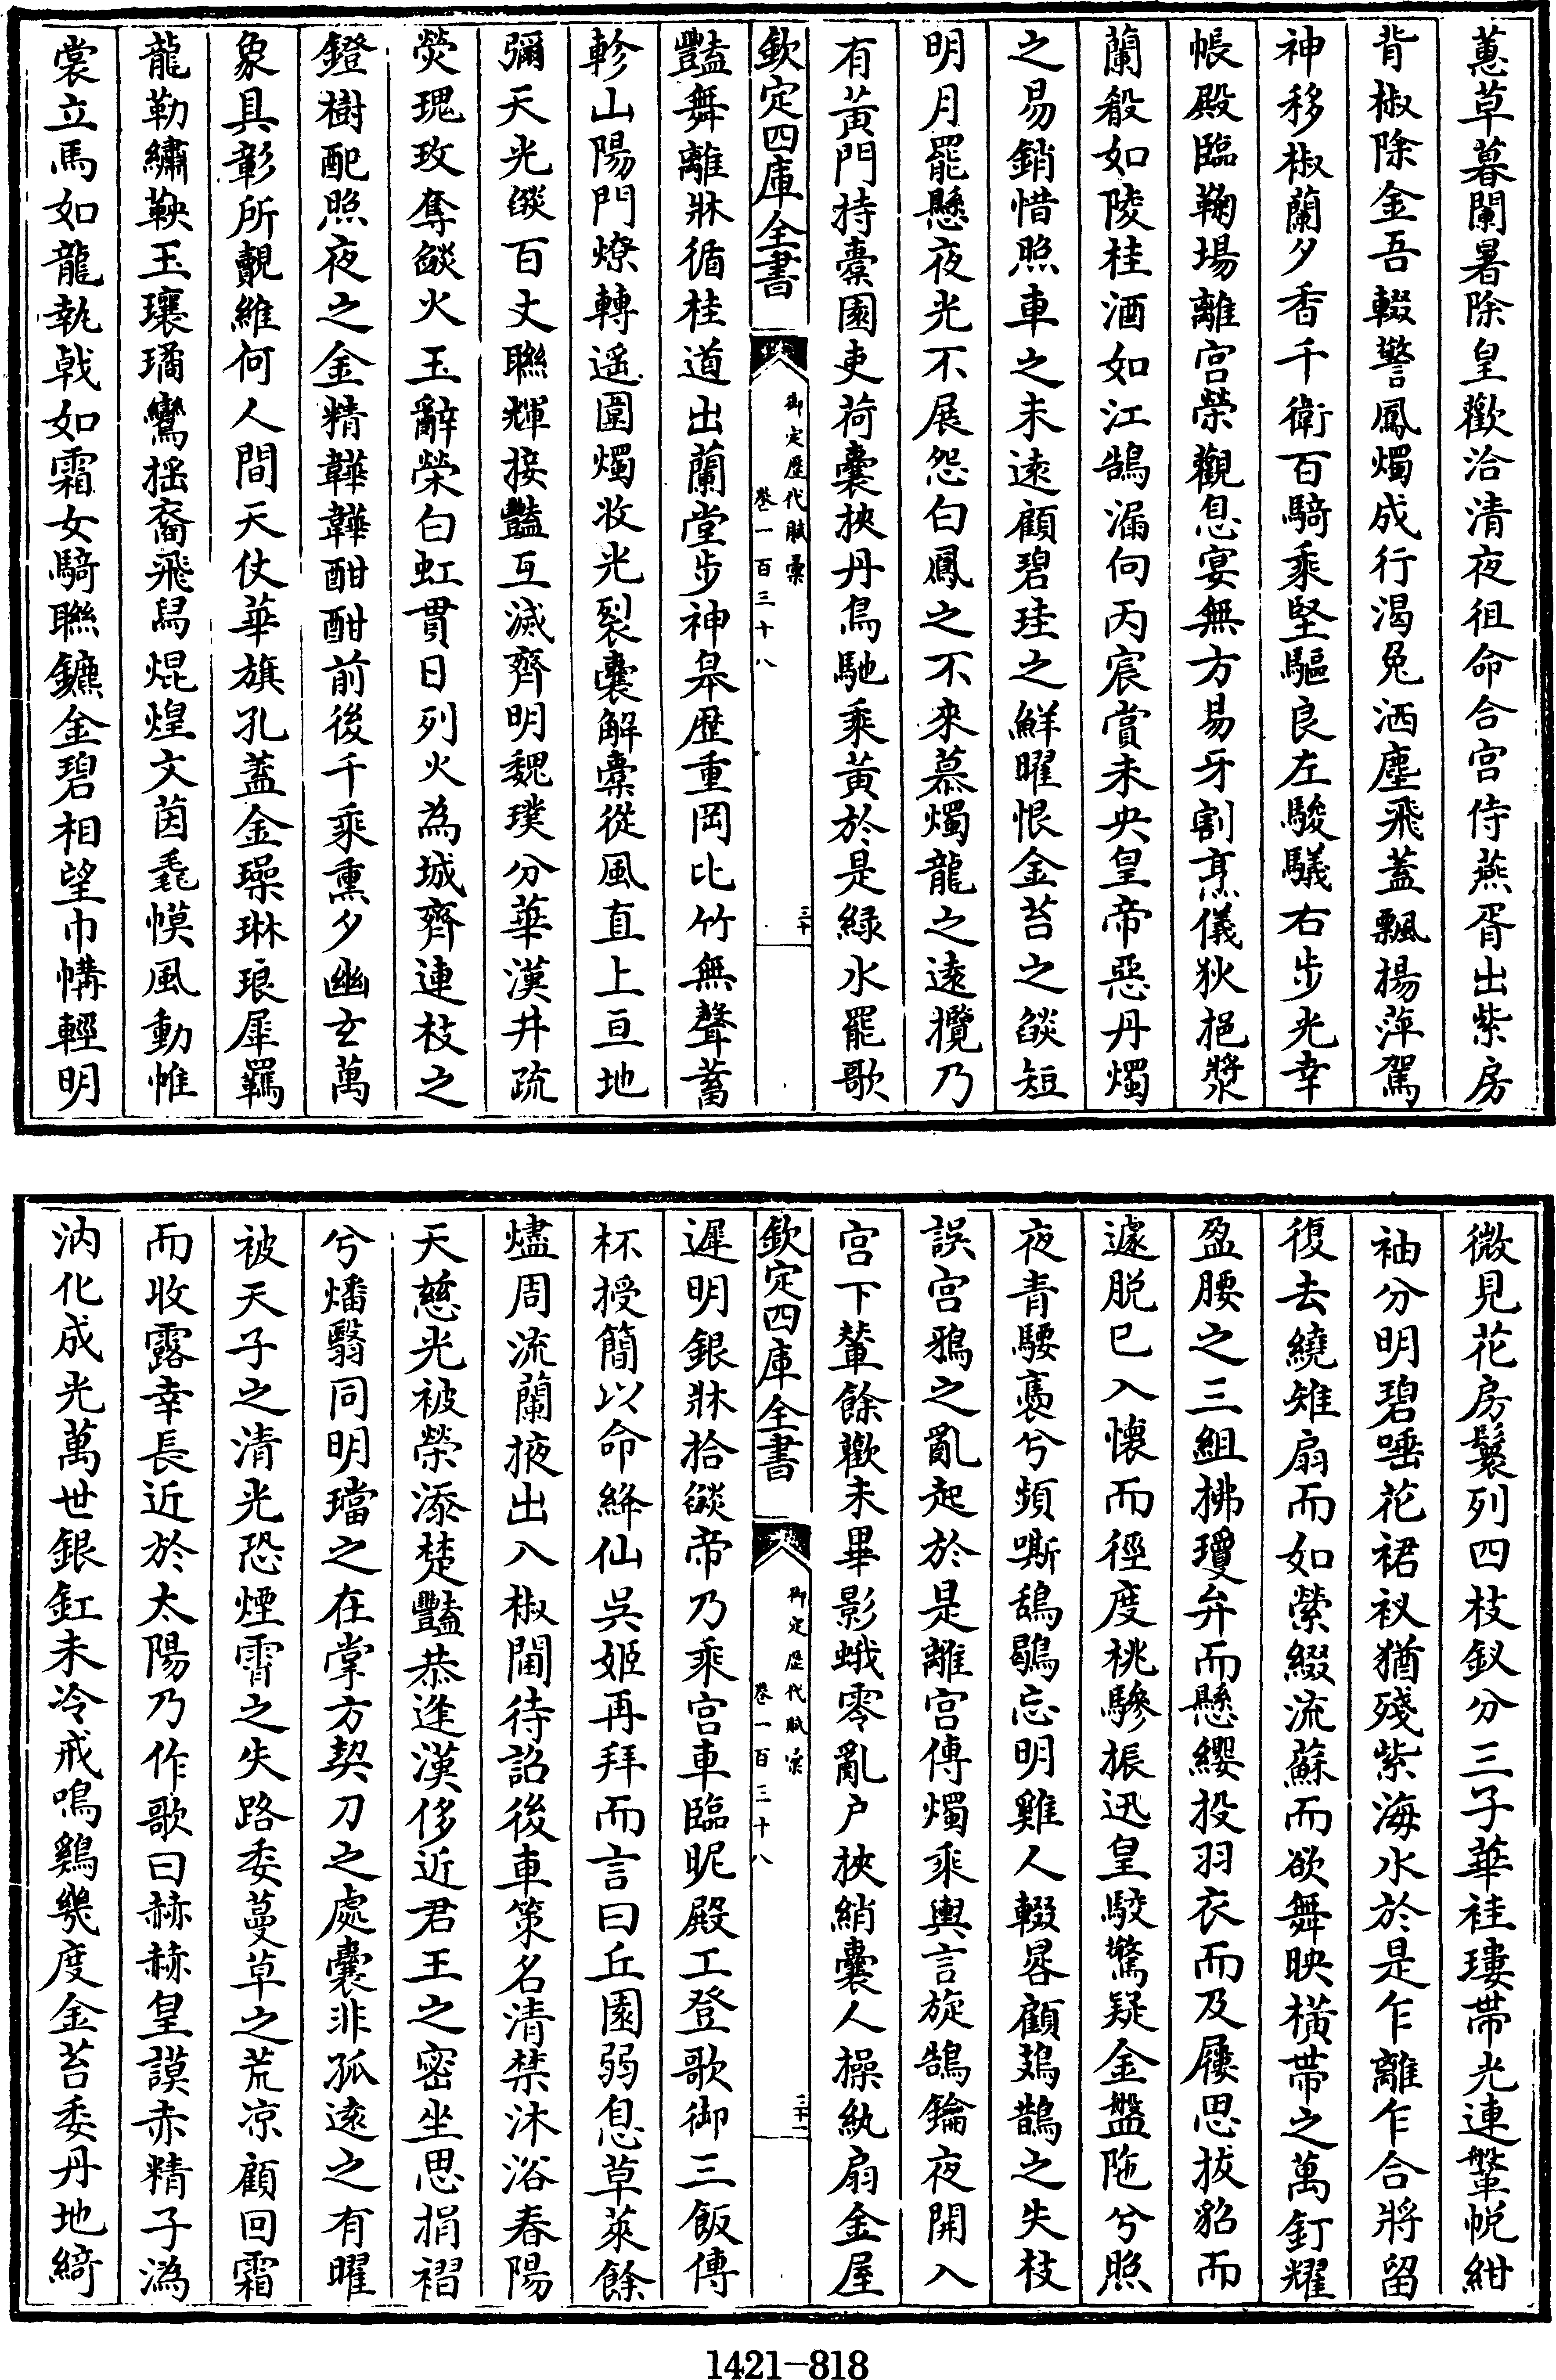 蕙草暮闌暑除皇歡洽清夜徂命合宮侍燕胥出紫房
背椒除金吾輟警鳳燭成行渴兔洒塵飛蓋飄揚萍駕
神移椒蘭夕香千衛百騎乘堅驅良左駿驥右步光幸
帳殿臨鞠場離宮榮觀息宴無方易牙割烹儀狄挹漿
蘭殽如陵桂酒如江鵠漏向丙宸賞未央皇帝惡丹燭
之易銷惜照車之未遠顧碧珪之鮮曜恨金苔之燄短
明月罷懸夜光不展怨白鳳之不來慕燭龍之遠攬乃
有黃門持橐園吏荷囊挾丹鳥馳乘黃於是緑水罷歌
欽定四庫全書
御定歴代賦彙
卷一百三十八
三十
豔舞離牀循桂道出蘭堂步神皋歴重岡比竹無聲蓄
軫山陽門燎轉遥圍燭收光裂囊解橐從風直上亘地
彌天光燄百丈聯輝接豔互滅齊明魏璞分華漢井疏
熒瑰玫奪燄火玉辭榮白虹貫日列火為城齊連枝之
鐙樹配照夜之金精韡韡酣酣前後千乘熏夕幽玄萬
象具彰所覿維何人間天仗華旗孔蓋金璪琳琅犀羈
龍勒繡鞅玉瓖璚鸞揺裔飛舃焜煌文茵毳幙風動帷
裳立馬如龍執戟如霜女騎聯鑣金碧相望巾幬輕明
微見花房鬟列四枝釵分三子華袿璖帶光連鞶帨紺
袖分明碧唾花裙衩猶殘紫海水於是乍離乍合將留
復去繞雉扇而如縈綴流蘇而欲舞映橫帶之萬釘耀
盈腰之三組拂瓊弁而懸纓投羽衣而及屨思拔貂而
遽脱已入懷而徑度桃驂振迅皇駮驚疑金盤阤兮照
夜青騕褭兮頻嘶鴰鶡忘明雞人輟晷顧鳷鵲之失枝
誤宮鴉之亂起於是離宮傳燭乘輿言旋鵠鑰夜開入
宮下輦餘歡未畢影蛾零亂户挾綃囊人操紈扇金屋
欽定四庫全書
御定歴代賦彙
卷一百三十八
三十一
遲明銀牀拾燄帝乃乘宮車臨昵殿工登歌御三飯傳
杯授簡以命絳仙吳姬再拜而言曰丘園弱息草萊餘
燼周流蘭掖出入椒闈待詔後車策名清禁沐浴春陽
天慈光被榮添楚豔恭逢漢侈近君王之密坐思捐褶
兮燔翳同明璫之在掌方契刀之處囊非孤遠之有曜
被天子之清光恐煙霄之失路委蔓草之荒凉顧回霜
而收露幸長近於太陽乃作歌曰赫赫皇謨赤精子溈
汭化成光萬世銀釭未冷戒鳴鷄幾度金苔委丹地綺
1421—818